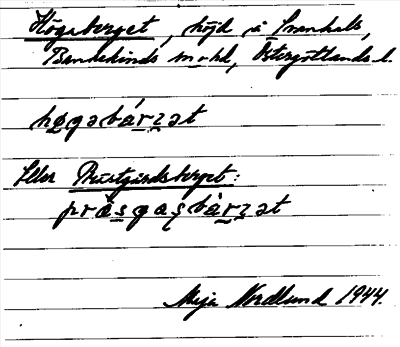 Högaberget, höjd i Svanhals,
Bankekinds m. hd, Östergötlands l.
høgəbárʐət
Eller Prästgårdsberget:
præsgaşbàrʐət
Maja Nordlund 1944.